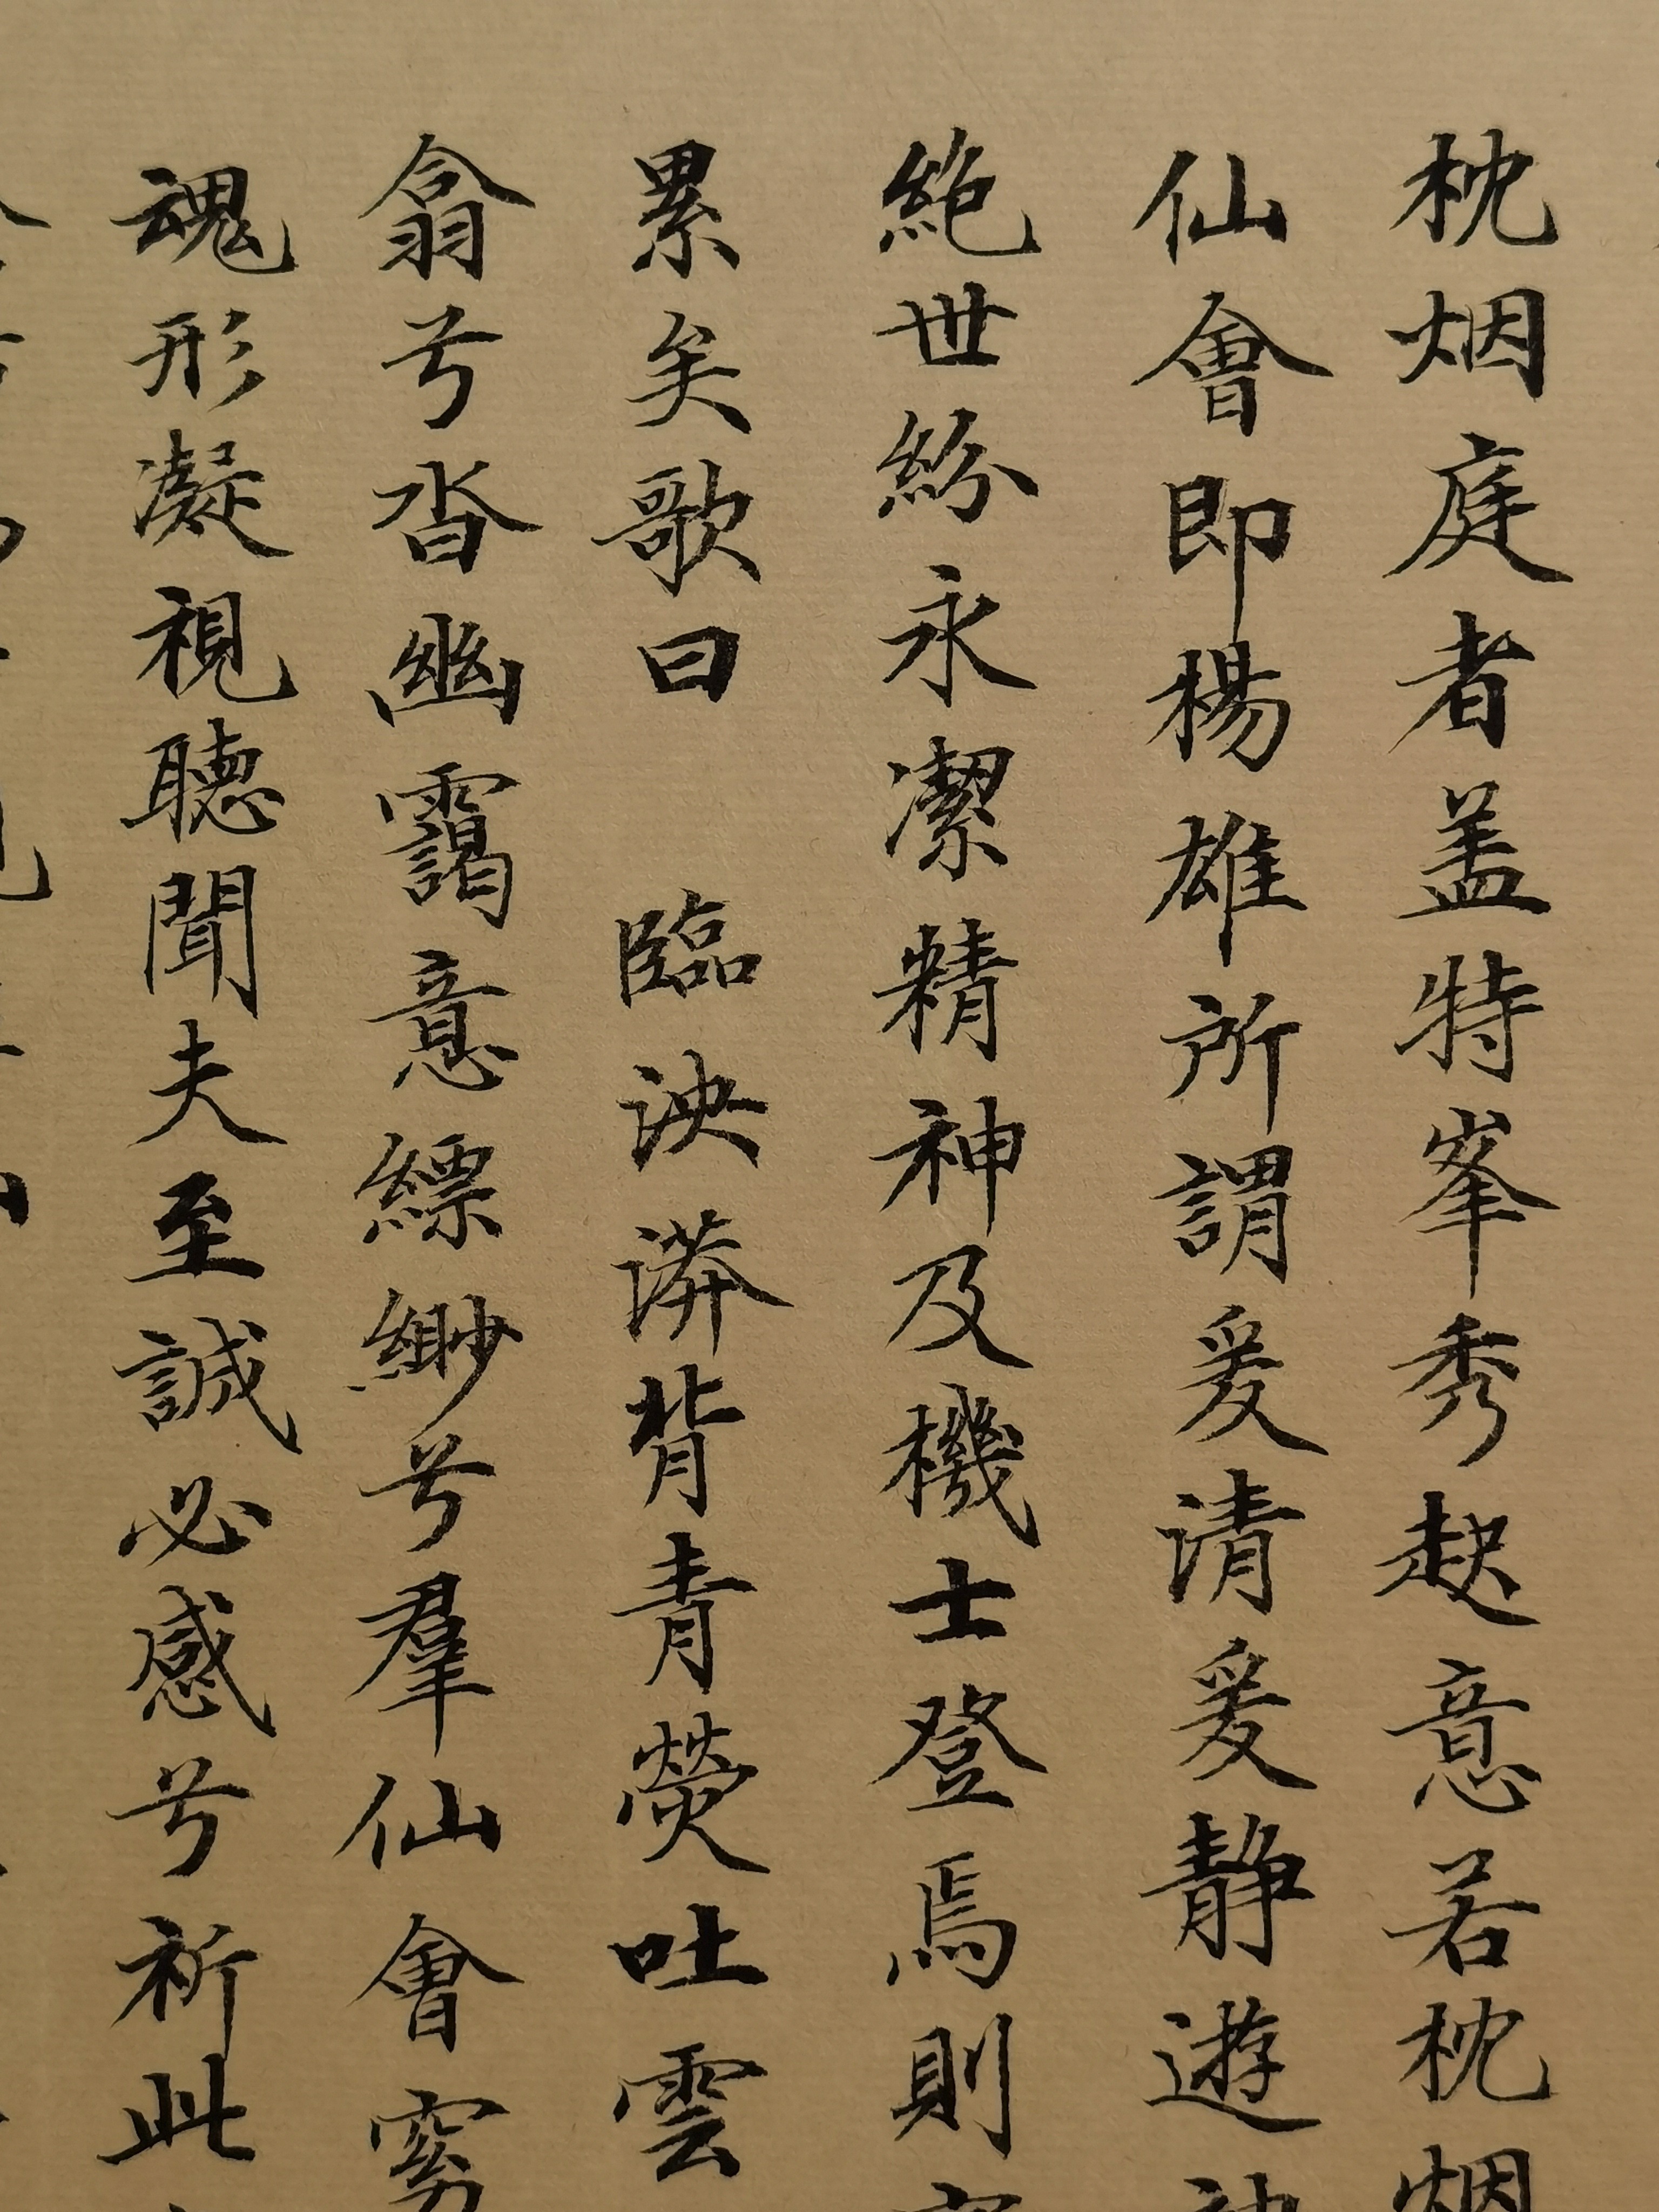 枕烟庭者盖特峯秀起意若枕烟
仙會即楊雄所謂爰清爰静遊神
絶世紛永潔精神及機士登焉則
累矣歌曰 臨泱漭背青熒吐雲
翕兮沓幽靄意縹緲兮羣仙會窅
魂形凝視聽聞夫至誠必感兮祈此